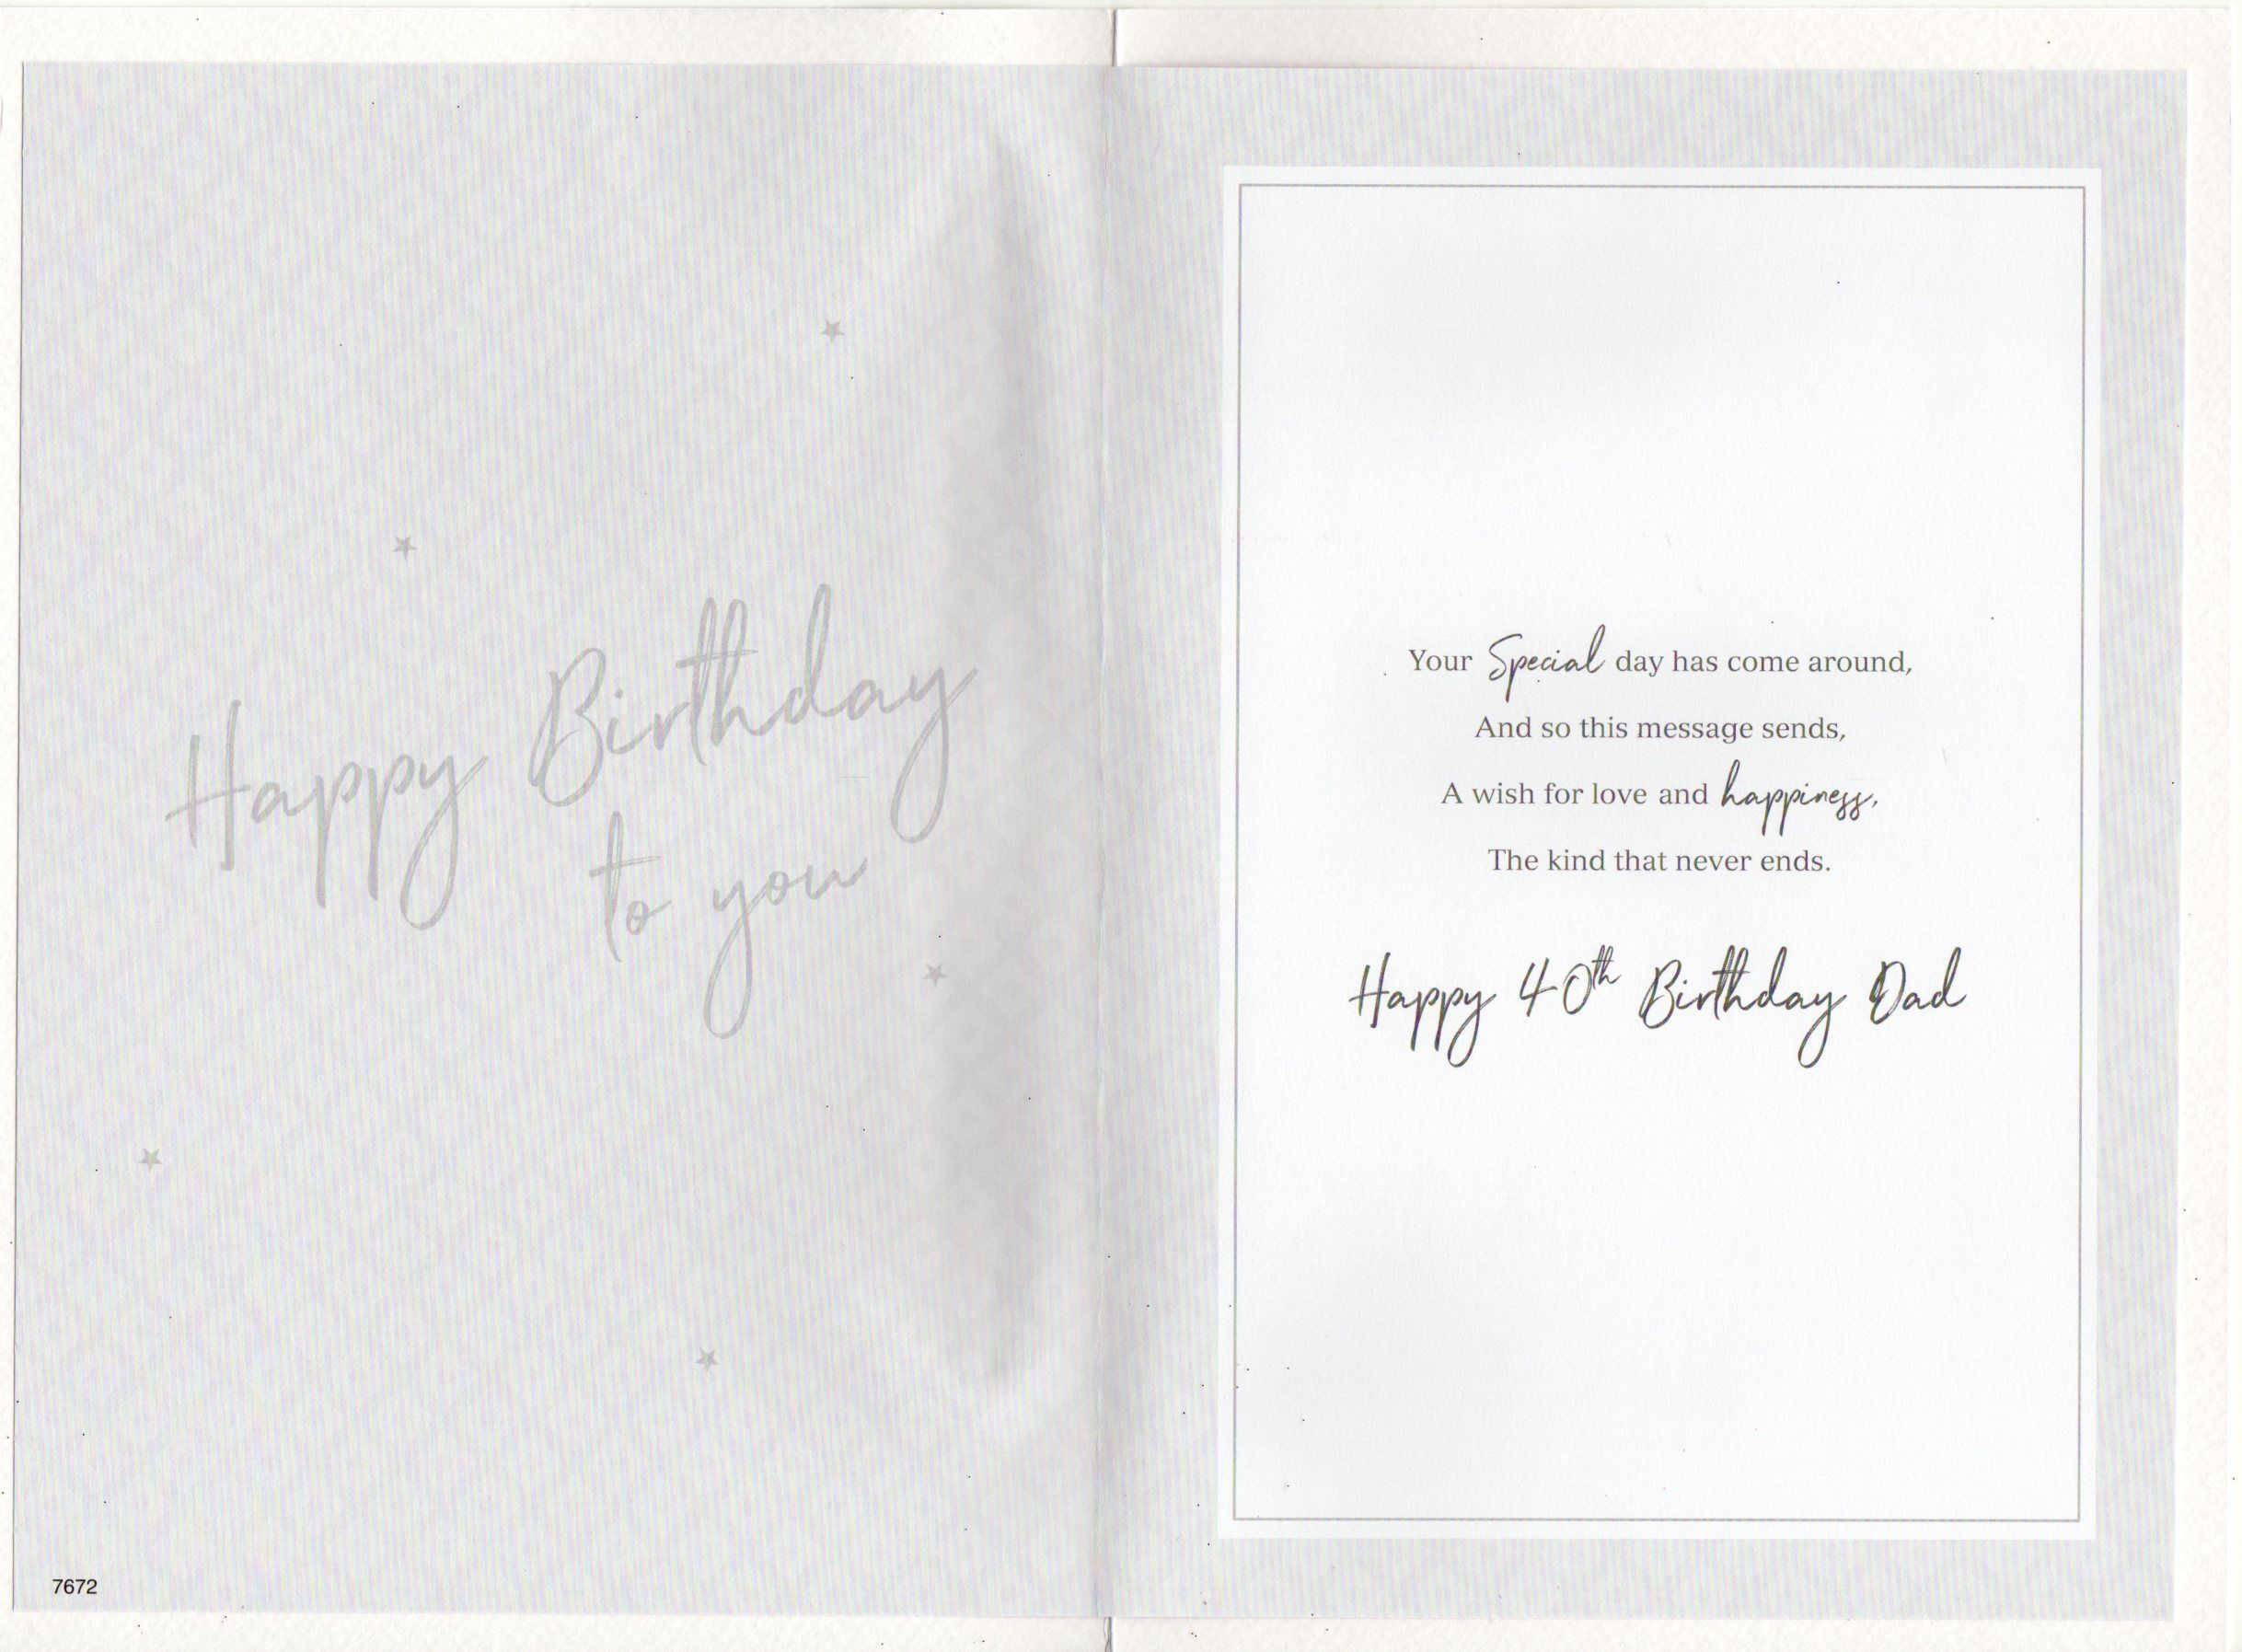 Happy Birthday
to you
7672
Your Special day has come around,
And so this message sends,
A wish for love and happiness,
The kind that never ends.
Happy 40th Birthday Dad